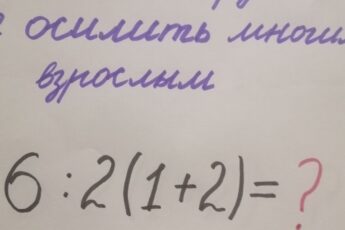 осилить многим
взрослым
6 : 2 (1 + 2) = ?